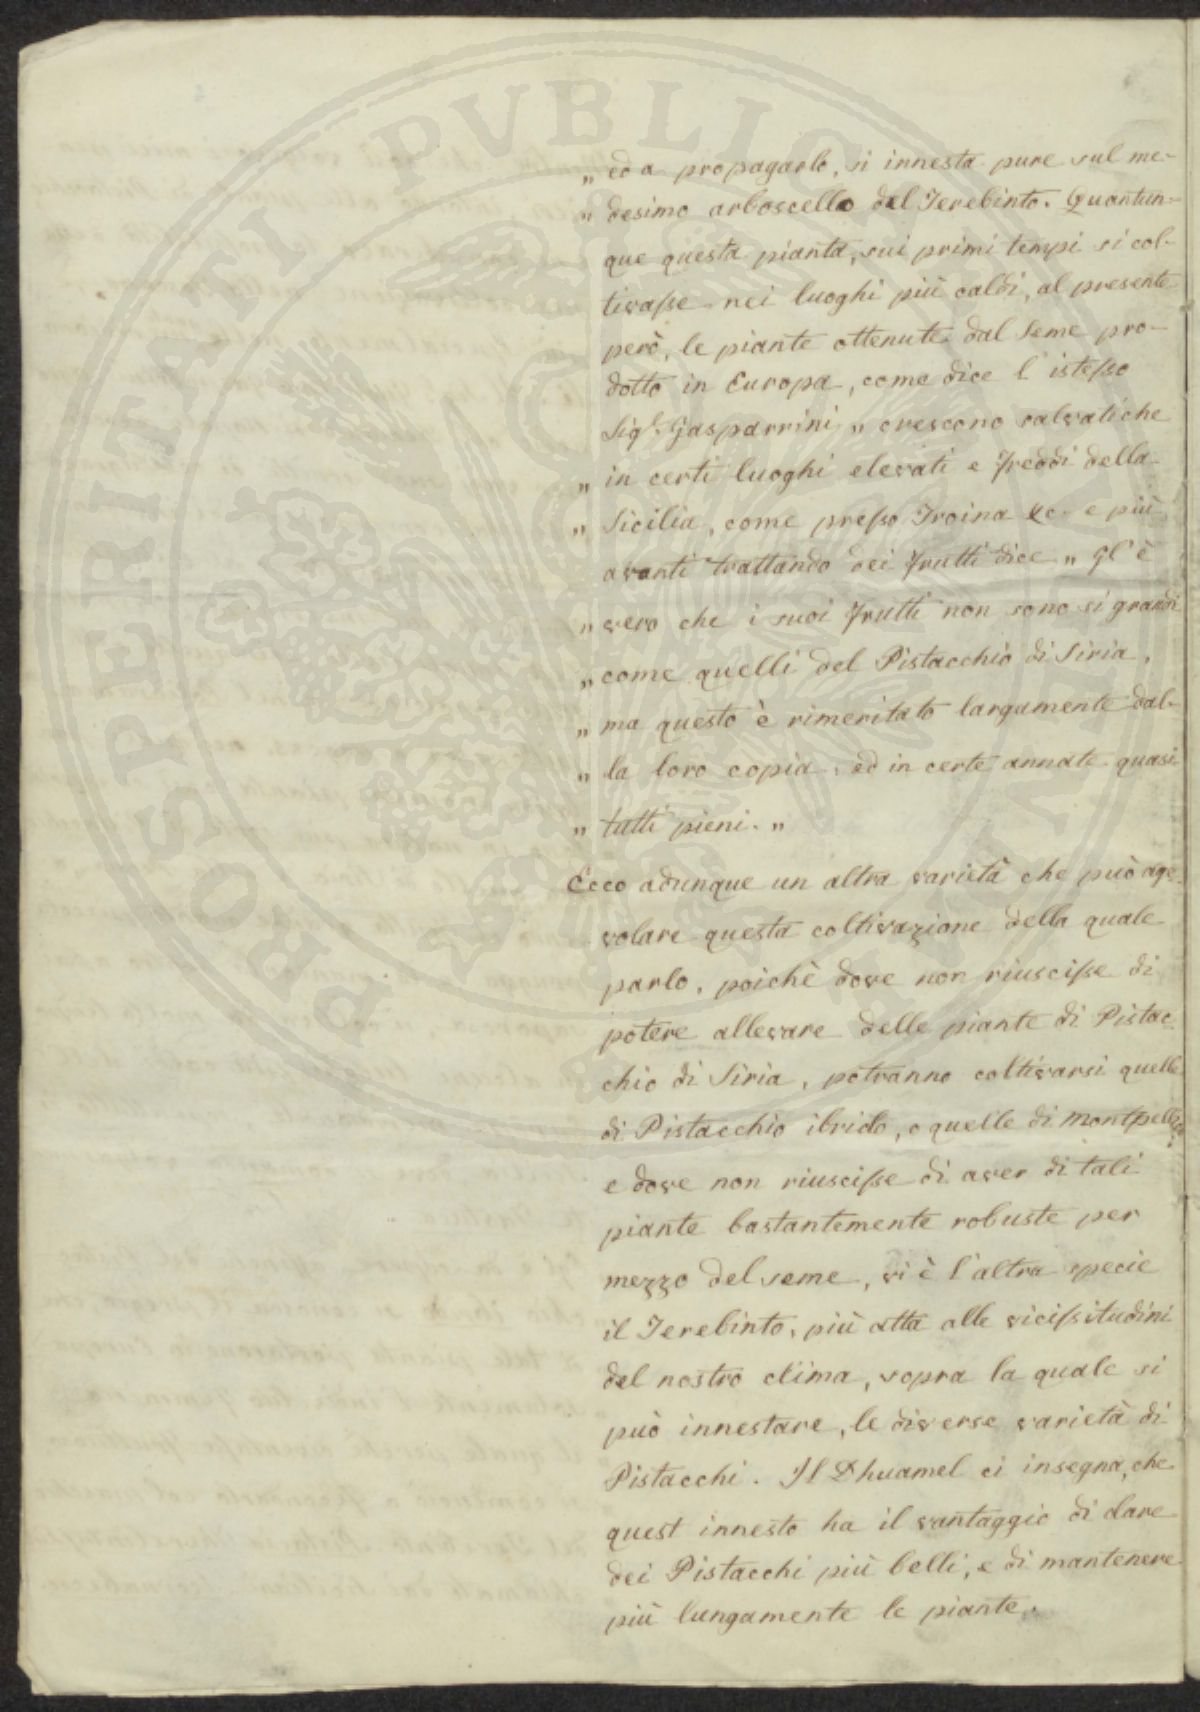 „ ed a propagarlo, si innesta pure sul me-
„ desimo arboscello del Terebinto. Quantun-
que questa pianta, sui primi tempi si col-
tivasse nei luoghi più caldi, al presente
però, le piante ottenute dal seme pro-
dotto in Europa, come dice l'istesso
Sig.r Gasparrini „ crescono salvatiche
„ in certi luoghi elevati e freddi della
„ Sicilia, come presso Troina &c. e più
avanti trattando dei frutti dice „ Gl'è
„ vero che i suoi frutti non sono si grandi
„ come quelli del Pistacchio di Siria,
„ ma questo è rimeritato largamente dal-
„ la loro copia, ed in certe annate quasi
„ tutti pieni. „
Ecco adunque un altra varietà che può age-
volare questa coltivazione della quale
parlo, poichè dove non riuscisse di
potere allevare delle piante di Pistac-
chio di Siria, potranno coltivarsi quelle
di Pistacchio ibrido, o quelle di Montpellier,
e dove non riuscisse di aver di tali
piante bastantemente robuste per
mezzo del seme, vi è l'altra specie
il Terebinto, più atta alle vicissitudini
del nostro clima, sopra la quale si
può innestare, le diverse varietà di
Pistacchi. Il Dhuamel ci insegna, che
quest innesto ha il vantaggio di dare
dei Pistacchi più belli, e di mantenere
più lungamente le piante.
PROSPERITATI PVBLIC